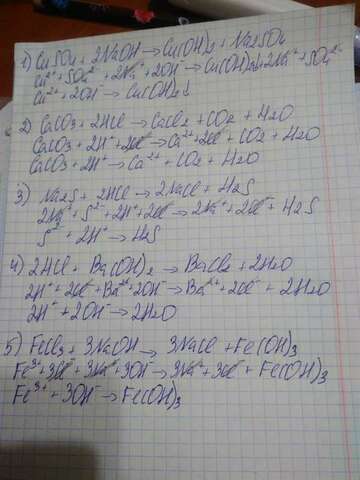 1) CuSO4 + 2NaOH → Cu(OH)2 + Na2SO4
Cu2+ + SO4 2- + 2Na+ + 2OH- → Cu(OH)2↓ + 2Na+ + SO4 2-
Cu2+ + 2OH- → Cu(OH)2↓
2) CaCO3 + 2HCl → CaCl2 + CO2 + H2O
CaCO3 + 2H+ + 2Cl- → Ca2+ + 2Cl- + CO2 + H2O
CaCO3 + 2H+ → Ca2+ + CO2 + H2O
3) Na2S + 2HCl → 2NaCl + H2S
2Na+ + S2- + 2H+ + 2Cl- → 2Na+ + 2Cl- + H2S
S2- + 2H+ → H2S
4) 2HCl + Ba(OH)2 → BaCl2 + 2H2O
2H+ + 2Cl- + Ba2+ + 2OH- → Ba2+ + 2Cl- + 2H2O
2H+ + 2OH- → 2H2O
5) FeCl3 + 3NaOH → 3NaCl + Fe(OH)3
Fe3+ + 3Cl- + 3Na+ + 3OH- → 3Na+ + 3Cl- + Fe(OH)3
Fe3+ + 3OH- → Fe(OH)3